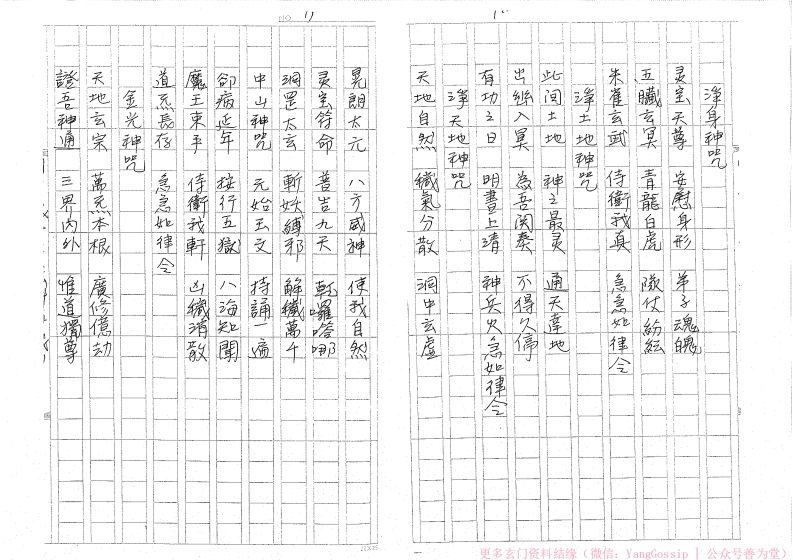 淨身神咒
灵宝天尊 安慰身形 弟子魂魄
五臟玄冥 青龍白虎 隊仗紛紜
朱雀玄武 侍衛我真 急急如律令
淨土地神咒
此间土地 神之最灵 通天達地
出幽入冥 為吾関奏 不得久停
有功之日 明書上清 神兵火急如律令
淨天地神咒
天地自然 穢氣分散 洞中玄虛
晃朗太元 八方威神 使我自然
灵宝符命 普告九天 乾囉嗒哪
洞罡太玄 斬妖縛邪 解穢萬千
中山神咒 元始玉文 持誦一遍
卻病延年 按行五獄 八海知聞
魔王束手 侍衛我軒 凶穢消散
道炁長存 急急如律令
金光神咒
天地玄宗 萬炁本根 廣修億劫
證吾神通 三界內外 惟道獨尊
更多玄门资料结缘（微信：YangGossip | 公众号善为堂）